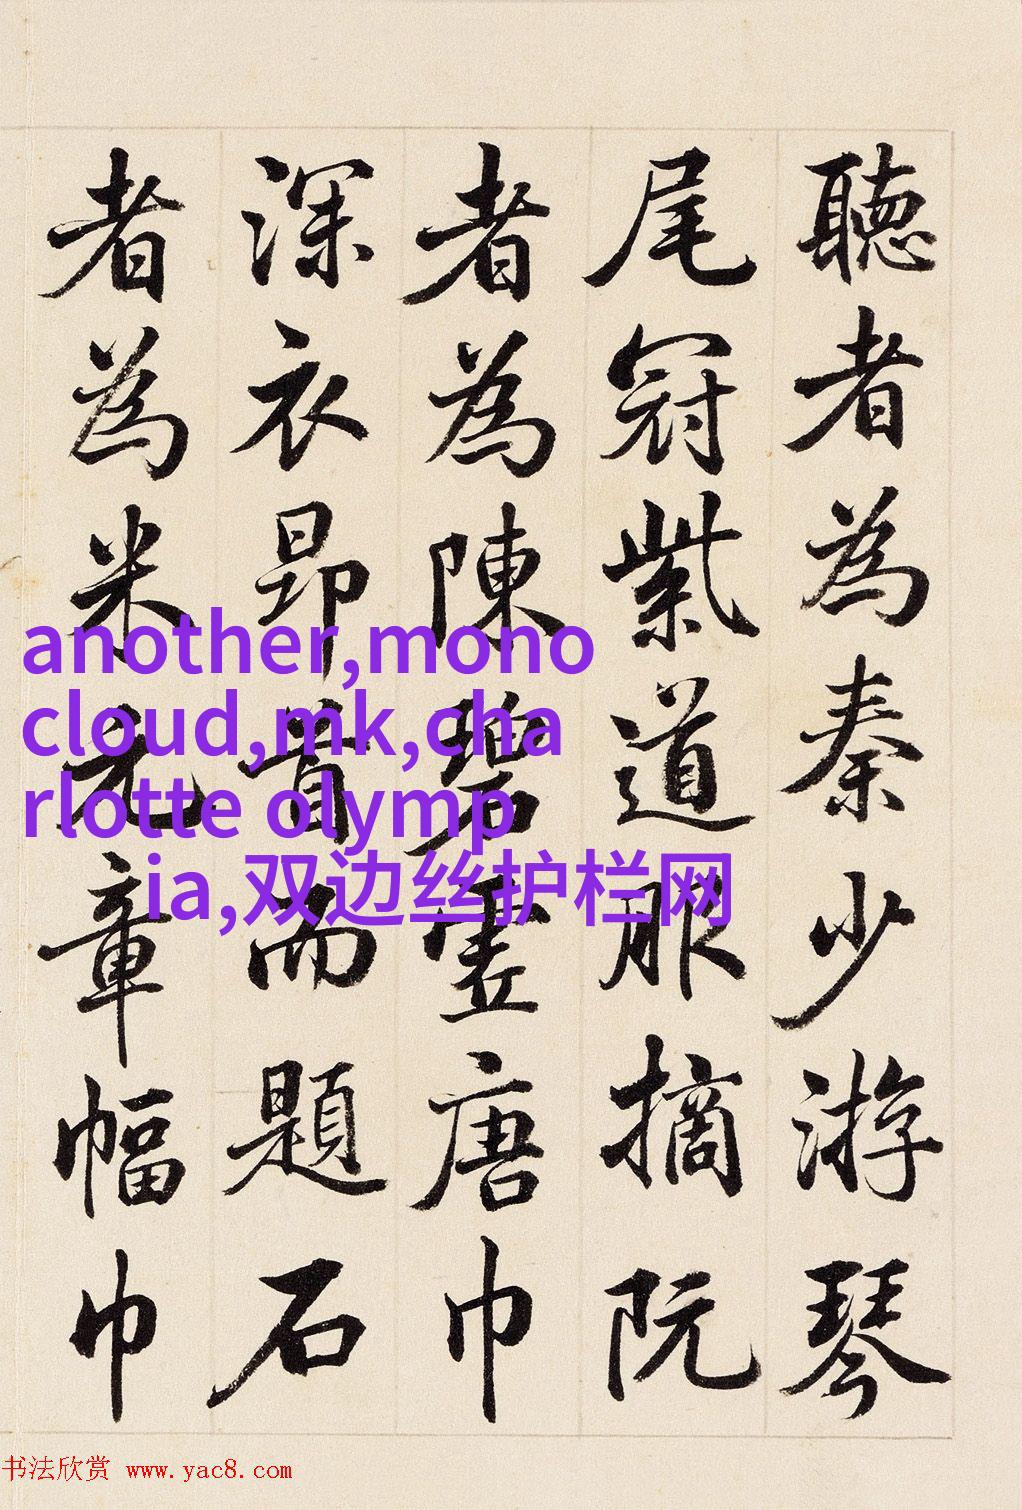 聽者為秦少游琴
尾冠紫道服摘阮
者為陳碧虛唐巾
深衣昂首而題石
者為米元章幅巾
another,mono
cloud,mk,cha
rlotte olymp
ia,双边丝护栏网
书法欣赏 www.yac8.com